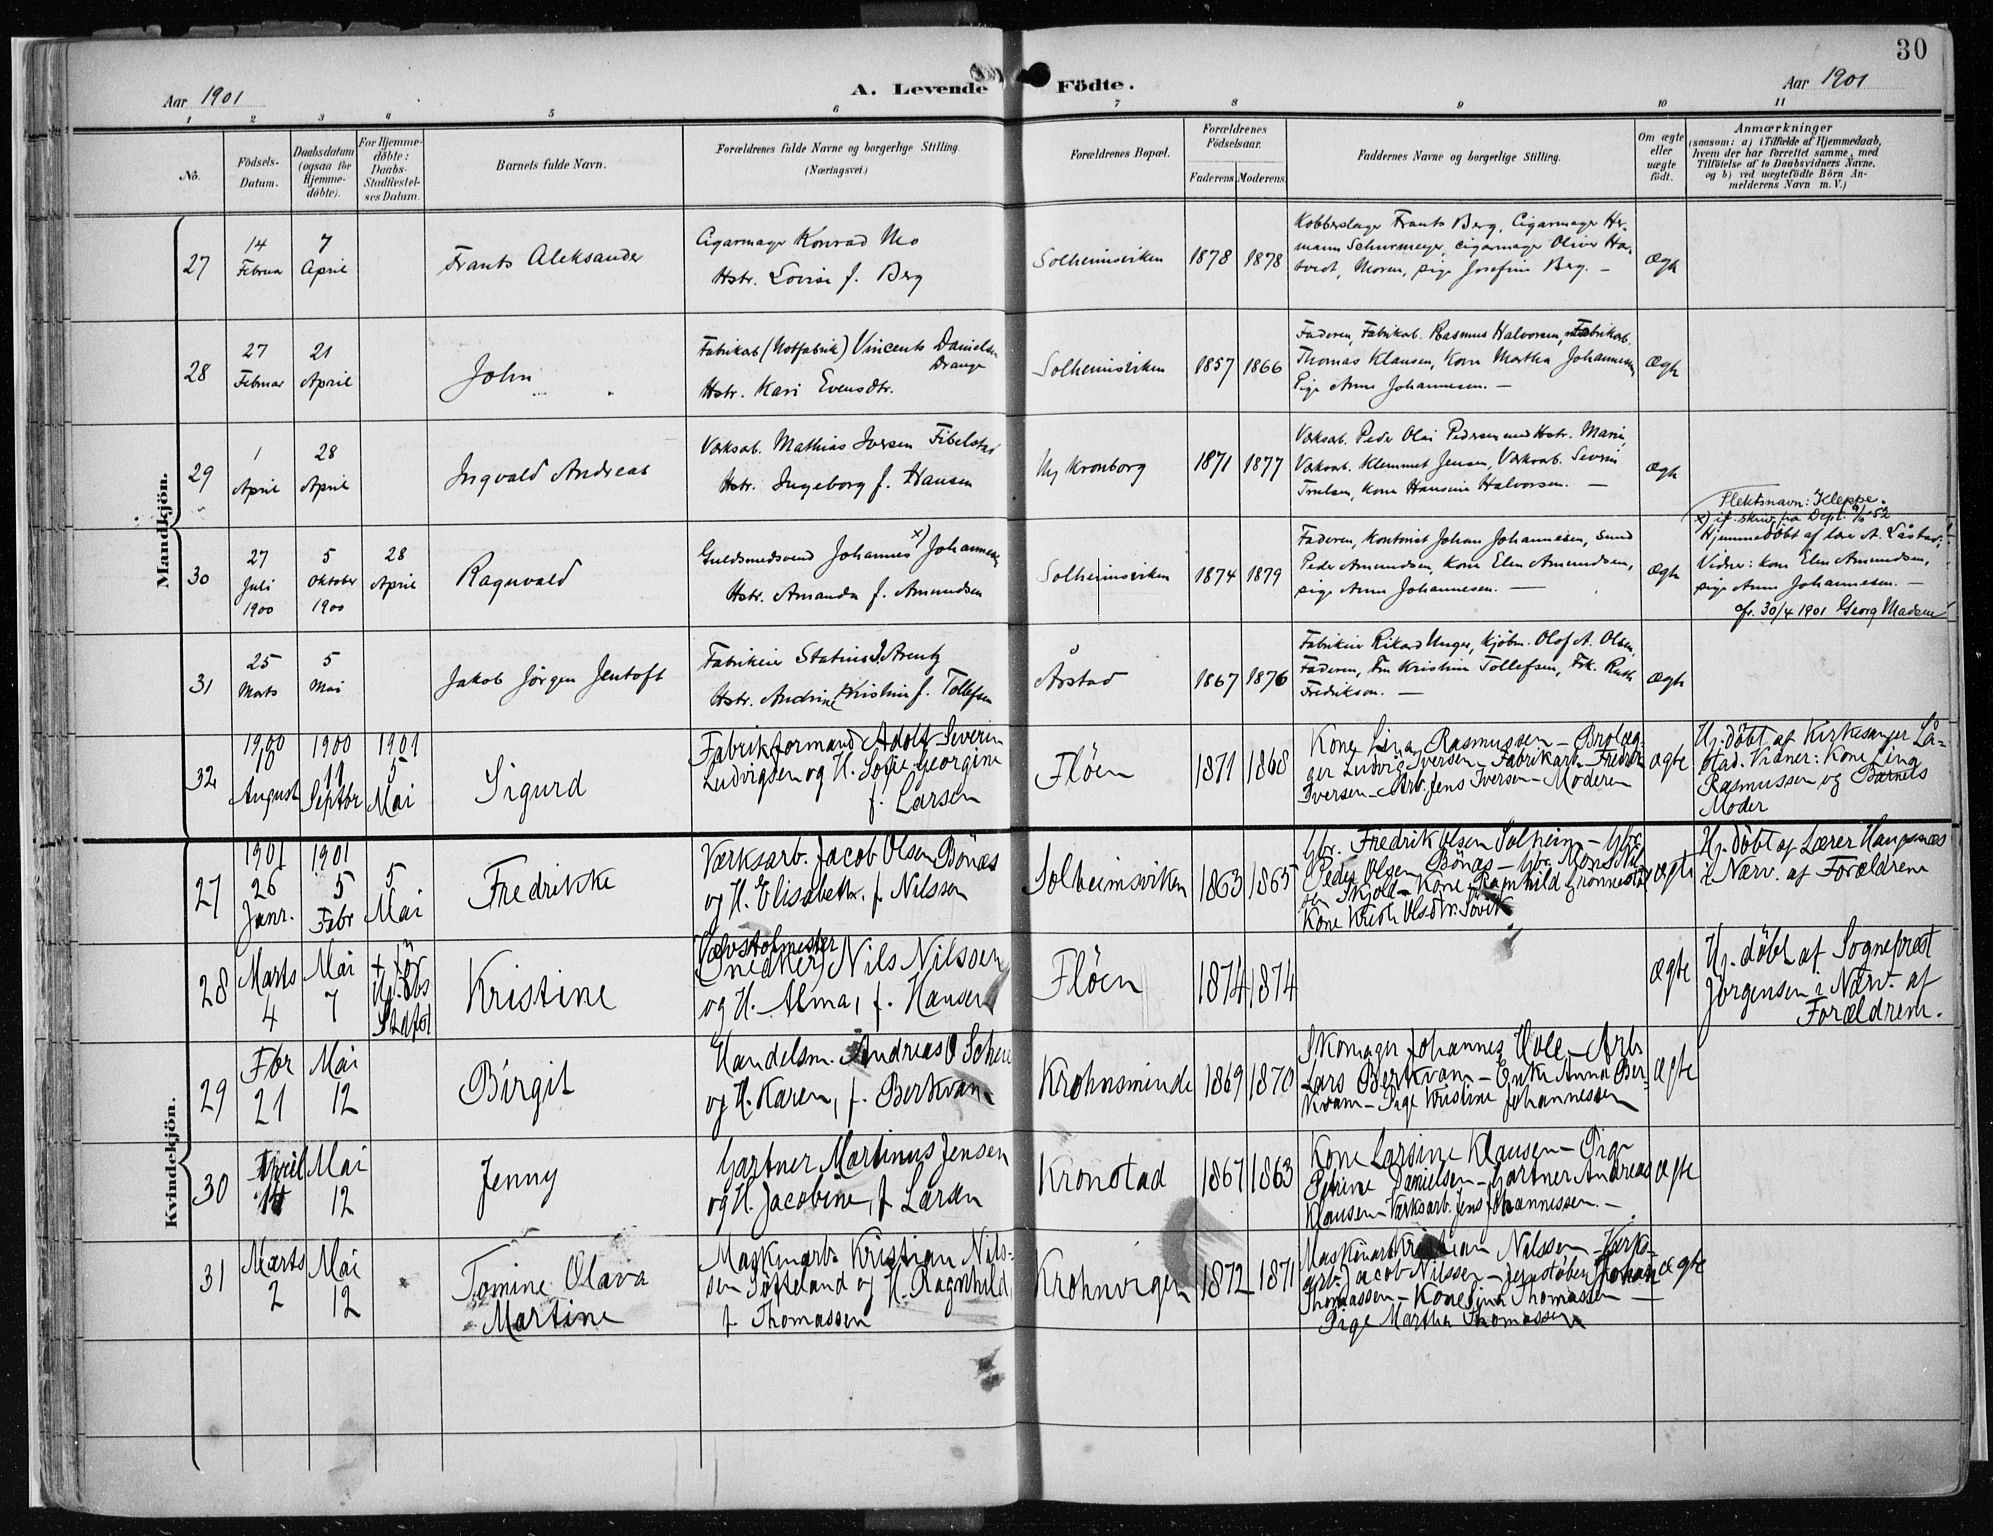 30
Aar 1901
A. Levende Födte.
Aar 1901
1 2 3 4 5 6 7 8 9 10 11
No.
Födsels-
Datum.
Daabsdatum
(ogsaa for
Hjemme-
döbte).
For Hjemme-
döbte:
Daabs-
Stadfæstel-
ses Datum.
Barnets fulde Navn.
Forældrenes fulde Navne og borgerlige Stilling.
(Næringsvei.)
Forældrenes Bopæl.
Forældrenes
Födselsaar.
Faderens Moderens
Faddernes Navne og borgerlige Stilling.
Om ægte
eller
uægte
födt.
Anmærkninger
(saasom: a) i Tilfælde af Hjemmedaab,
hvem der har forrettet samme, med
Tilföielse af to Daabsvidners Navne,
og b) ved uægtefödte Börn An-
melderens Navn m. V.)
Mandkjön.
27
14
Februar
7
April
Frants Aleksander
Cigarmager Konrad Mo
Hstr. Lovise f. Berg
Solheimsviken
1878 1878
Kobberslager Frants Berg, Cigarmager Her-
mann Schurmeyer, cigarmager Oliver
tvedt, Moren, pige Josefine Berg. —
ægte
28
27
Februar
21
April
John
Fabrikarb (Notfabrik) Vincents Danielsen
Drange
Hstr. Kari Evensdtr.
Solheimsviken
1857 1866
Faderen, Fabrikarb. Rasmus Halvorsen, Fabrikarb.
Thomas Klausen, Kone Martha Johannesen,
Pige Anne Johannesen. —
ægte
29
1
April
28
April
Ingvald Andreas
Værksarb. Mathias Iversen Fibelstad
Hstr. Ingeborg f. Hansen
Ny Kronborg
1871 1877
Værksarb. Peder Olai Pedersen med Hstr. Marie,
Værksarb. Klemmet Jensen, Værksarb. Severin
Truelsen, Kone Hansine Halvorsen. —
ægte
30
27
Juli
1900
5
Oktober
1900
28
April
Ragnvald
Guldsmedsvend Johannes x) Johannesen
Hstr. Amanda f. Amundsen
Solheimsviken
1874 1879
Faderen, Kontorist Johan Johannesen, Smed
Peder Amundsen, Kone Elen Amundsen,
pige Anne Johannesen. —
ægte
Slektsnavn: Kleppe.
x) if. skriv fra Dept.
Hjemmedöbt af lærer A. Låstad.
Vidner: kone Elen Amundsen,
pige Anna Johannesen. —
30/4 1901 Georg Madsen
31
25
Marts
5
Mai
Jakob Jörgen Jentoft
Fabrikeier Statius J. Arentz
Hstr. Andrine Kristine f. Tollefsen
Årstad
1867 1876
Fabrikeier Rikard Unger, Kjøbm. Olaf A. Olsen,
Faderen, Fru Kristine Tollefsen, Frk. Ruth
Fredrikson. —
ægte
32
1900
August
1900
11
Septbr
1901
5
Mai
Sigurd
Fabrikformand Adolf Severin
Ludvigsen og H. Sofie Georgine
f. Larsen
Flöen
1871 1868
Kone Lina Rasmussen – Brolæg-
ger Ludvig Iversen – Fabrikarb. Fredrik
Iversen – Arb. Jens Iversen – Moderen
ægte
Hj. döbt af Kirkesanger Lå-
stad. Vidner: Kone Lina
Rasmussen og Barnets
Moder
Kvindekjön.
27
1901
26
Janr.
1901
5
Febr
5
Mai
Fredrikke
Værksarb. Jacob Olsen Bönæs
og H. Elisabeth f. Nilsson
Solheimsviken
1863 1865
Gbr. Fredrik Olsen Solheim – Gbr.
Peder Olsen Bönæs – Gbr. Mons
Skjold – Kone Ragnhild Grönnestad
Kone Kristi Olsdtr. Sövik
ægte
Hj. döbt af Lærer Haugsnæs
i Nærv. af Forældrene
28
Marts
4
Mai
7
+ för
Kristine
Vævstolmester
(Snedker) Nils Nilssen
og H. Alma, f. Hansen
Flöen
1874 1874
ægte
Hj. döbt af Sogneprest
Jørgensen i Nærv. af
Forældrene.
29
Fbr
21
Mai
12
Birgit
Handelsm. Andreas O Scheie
og H. Karen, f. Berkvam
Krohnsminde
1869 1870
Skomager Johannes Hole – Arb.
Lars Berkvam – Enke Anna Ber-
kvam – Pige Kristine Johannessen
ægte
30
April
14
Mai
12
Jenny
Gartner Martinus Jensen
og H. Jacobine, f. Larsen
Kronstad
1867 1863
Kone Larsine Klausen – Pige
Petrine Danielsen – Gartner Andreas
Klausen – Værksarb. Jens Johannessen. –
ægte
31
Marts
2
Mai
12
Tomine Olava
Martine
Maskinarb. Kristian Nils-
sen Söfteland og H. Ragnhild,
f. Thomassen
Krohnvigen
1872 1871
Maskinarb. Kristian Nilssen – Værks-
arb. Jacob Nilssen – Jernstöber Johan
Thomassen – Kone Sina Thomassen –
Pige Martha Thomassen
ægte